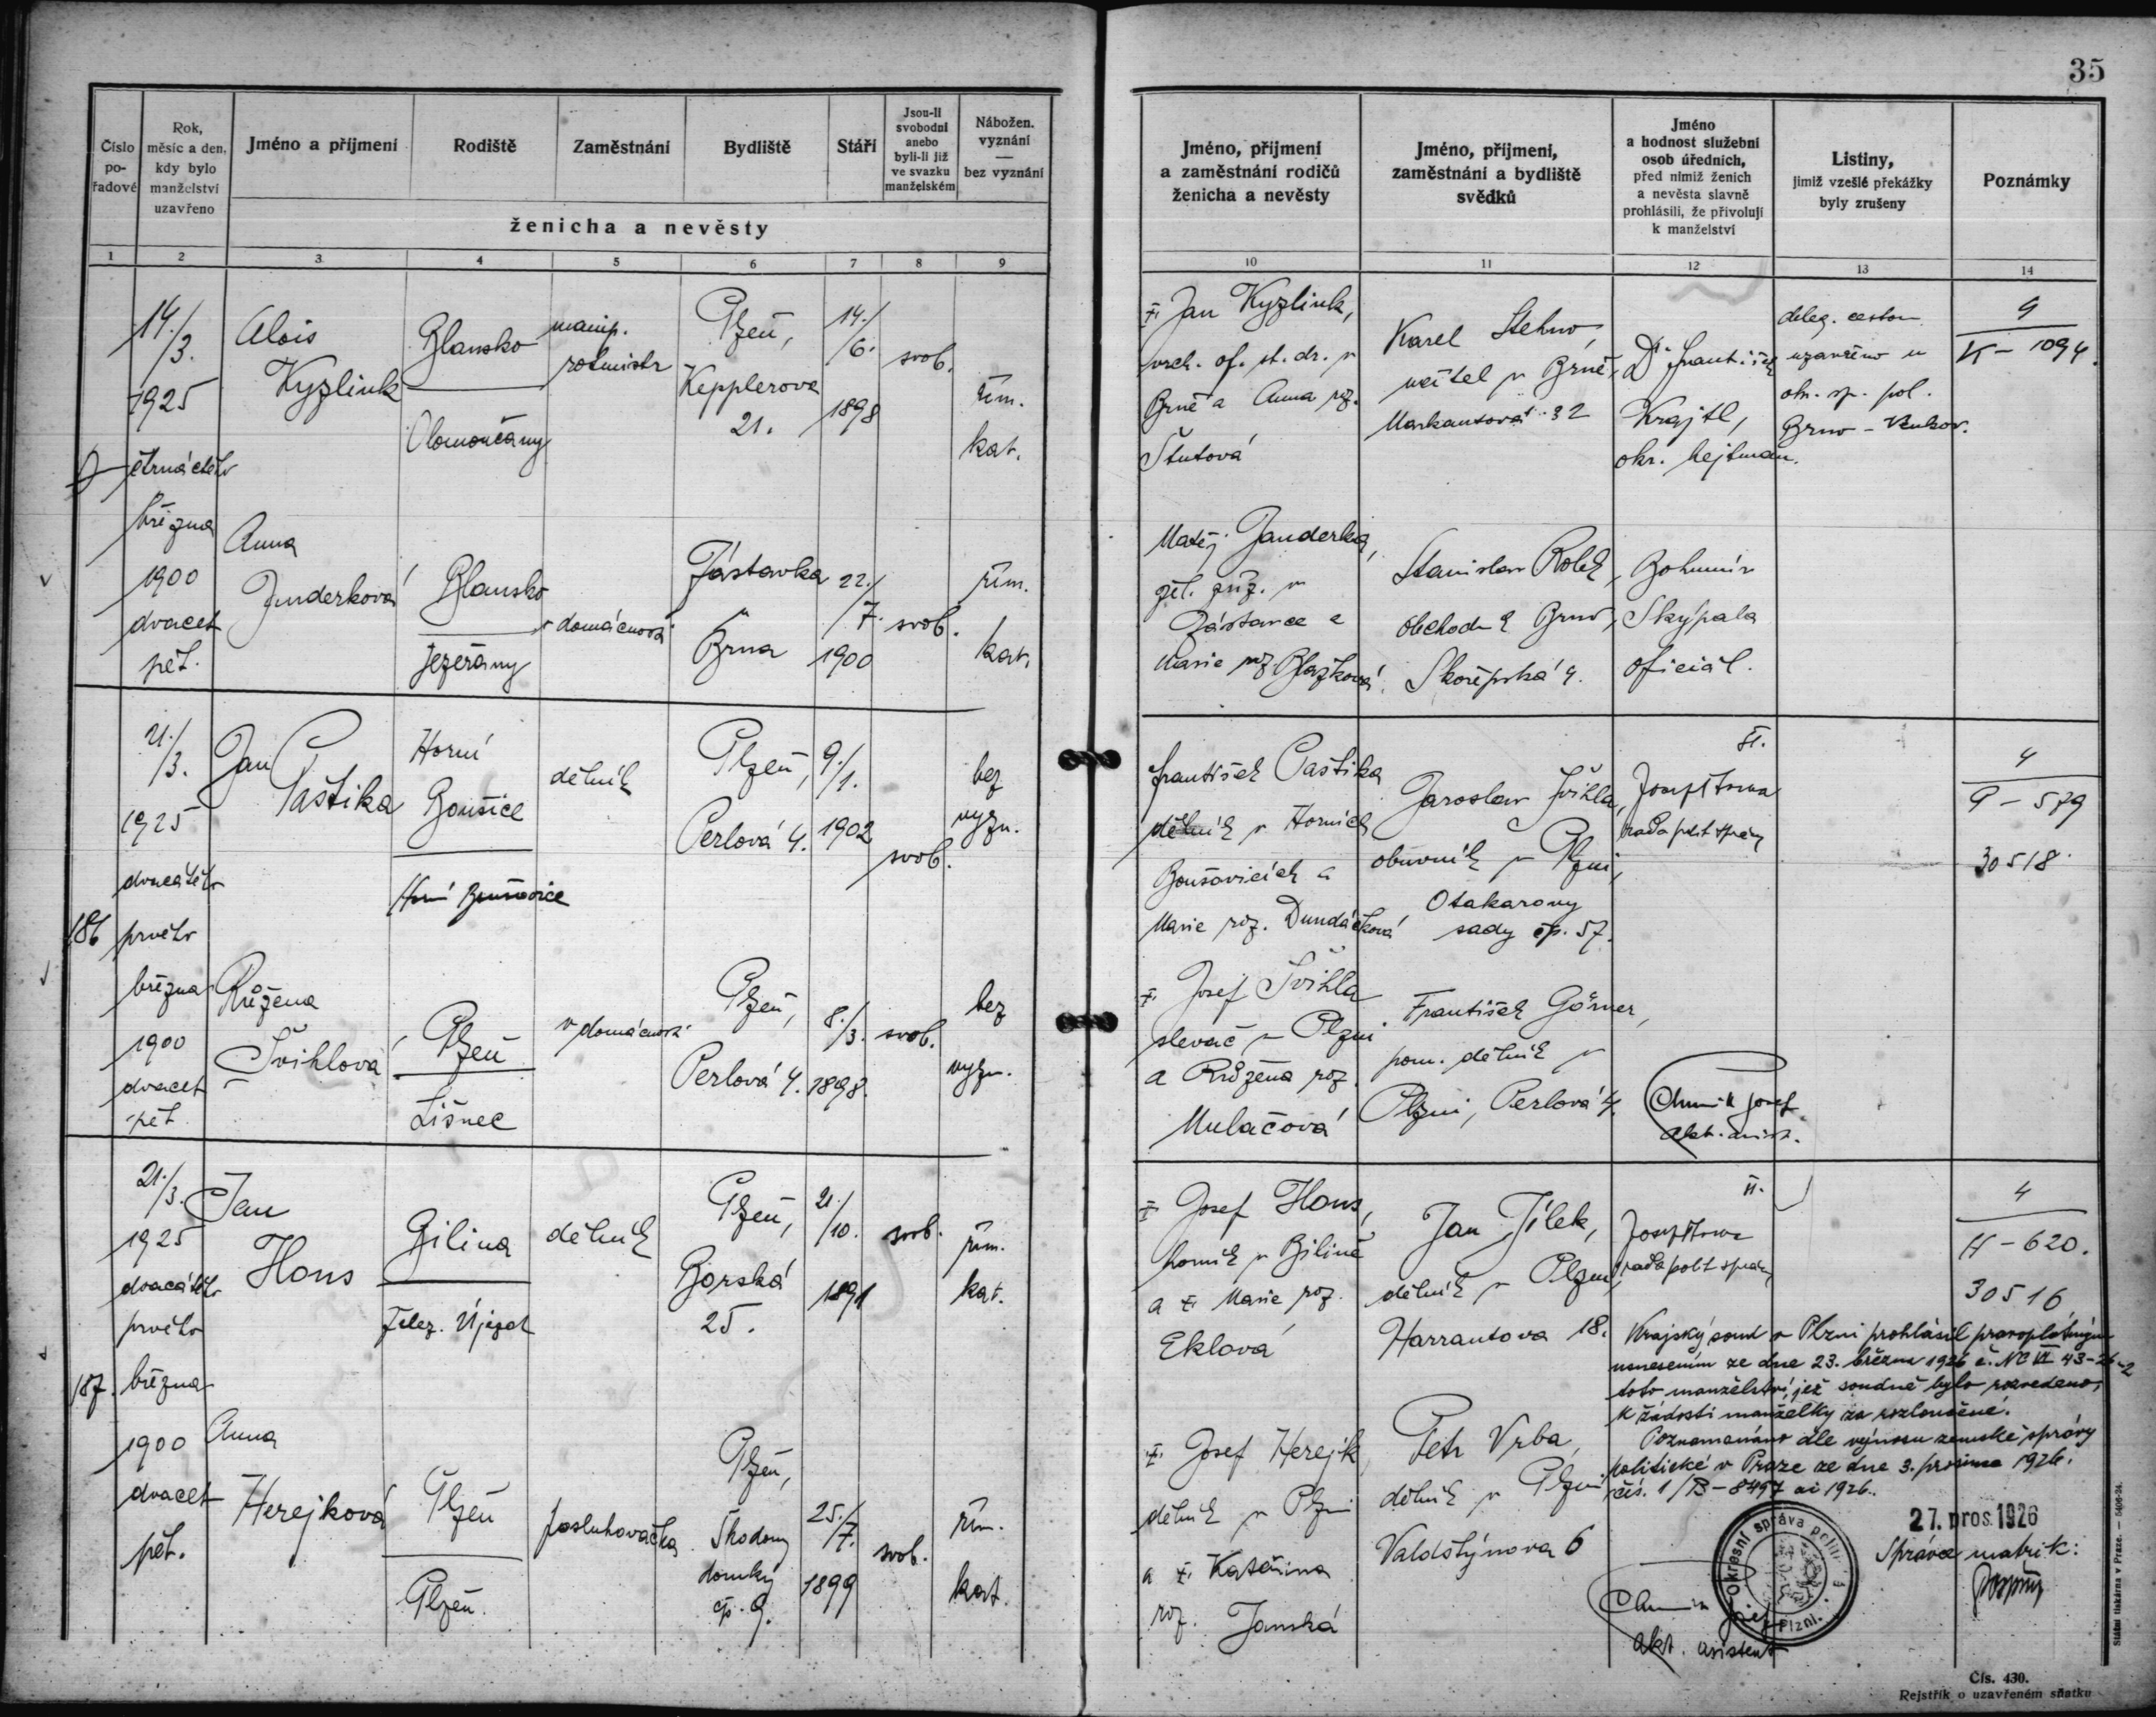 35
Číslo po-řadové
Rok, měsíc a den, kdy bylo manželství uzavřeno
Jméno a příjmení
Rodiště
Zaměstnání
Bydliště
Stáří
Jsou-li svobodni anebo byli-li již ve svazku manželském
Nábožen. vyznání — bez vyznání
ženicha a nevěsty
1 2 3 4 5 6 7 8 9
Jméno, příjmení a zaměstnání rodičů ženicha a nevěsty
Jméno, příjmení, zaměstnání a bydliště svědků
Jméno a hodnost služební osob úředních, před nimiž ženich a nevěsta slavně prohlásili, že přivolují k manželství
Listiny, jimiž vzešlé překážky byly zrušeny
Poznámky
10 11 12 13 14
14./3.
1925
čtrnáctého
března
1900
dvacet
pět.
Alois
Kyzlink
Blansko
Olomoučany
manip.
rotmistr
Plzeň,
Kepplerova
21.
14./6.
1898
svob.
řím.
kat.
Jan Kyzlink,
vrch. of. st. dr. v
Brně a Anna roz.
Šutová
Karel Stehno,
učitel v Brně,
32
Dr. František
Krajtl,
okr. hejtman.
deleg. cestou
uzavřeno u
okr. sp. pol.
Brno - Venkov.
9
K - 1094.
Anna
Junderková
Blansko
Jezeřany
v domácnosti
Zástavka
u
Brna
22./7.
1900
svob.
řím.
kat.
Matěj Janderka,
žel. zříz. v
Zástavce a
Marie roz. Blažková.
Stanislav Rolek,
obchod. Brno,
Skořepská 4.
Bohumír
Skýpala
oficiál.
186
21./3.
1925
dvacátého
prvého
března
1900
dvacet
pět
Jan
Paštika
Horní
Boušice
Horní Boušovice
dělník
Plzeň,
Perlová 4.
9./1.
1902
svob.
bez
vyzn.
František Paštika
dělník v Horních
Boušovicích a
Marie roz. Dundáčková
Jaroslav Švihla,
obuvník v Plzni,
Otakarovy
sady čp. 57.
II.
Josef
rada polit. správy
4
P - 579
30518
Růžena
Švihlová
Plzeň
Lišnec
v domácnosti
Plzeň,
Perlová 4.
8./3.
1898.
svob.
bez
vyzn.
Josef Švihla
slevač v Plzni
a Růžena roz.
Mulačová
František Görner,
pom. dělník v
Plzni, Perlová 4.
Chumik Josef
akt. asist.
187.
21./3.
1925
dvacátého
prvého
března
1900
dvacet
pět.
Jan
Hons
Bilina
Želez. Újezd
dělník
Plzeň,
Borská
25.
21./10.
1891
svob.
řím.
kat.
Josef Hons,
horník v Bilině
a Marie roz.
Eklová
Jan Jílek,
dělník v Plzni,
Harrantova 18.
II.
Josef
rada polit. správy
4
H - 620.
30516
Krajský soud v Plzni prohlásil pravoplatným
usnesením ze dne 23. března 1926 č. Nc VI 43-26-2
toto manželství, jež soudně bylo rozvedeno,
k žádosti manželky za rozloučené.
Poznamenáno dle výnosu zemské správy
politické v Praze ze dne 3. prosince 1926.
čís. 1/B - 8497 ai 1926.
27. pros. 1926
Správce matrik:
Okresní správa politická
Plzni.
Anna
Herejková
Plzeň
Plzeň.
posluhovačka
Plzeň,
Škodovy
domky
čp. 9.
25./7.
1899
svob.
řím.
kat.
Josef Herejk
dělník v Plzni
a Kateřina
roz. Janská
Petr Vrba,
dělník v Plzni
Valdštýnova 6
akt. asistent
Čís. 430.
Rejstřík o uzavřeném sňatku
Státní tiskárna v Praze. — 5406-24.